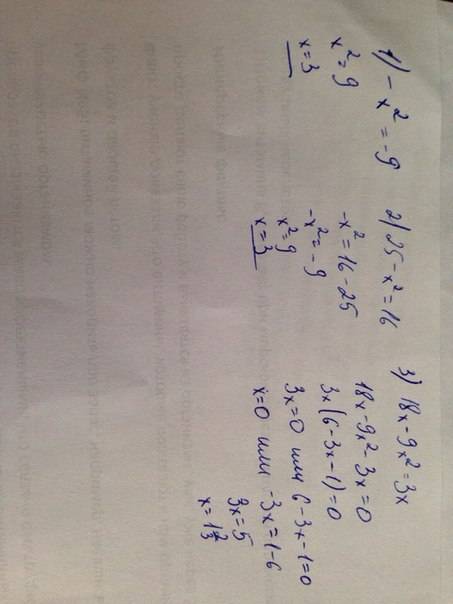 1) -x² = -9
x² = 9
x = 3
2) 25 - x² = 16
-x² = 16 - 25
-x² = -9
x² = 9
x = 3
3) 18x - 9x² = 3x
18x - 9x² - 3x = 0
3x(6 - 3x - 1) = 0
3x = 0 или 6 - 3x - 1 = 0
x = 0 или -3x = 1 - 6
3x = 5
x = 1 2/3